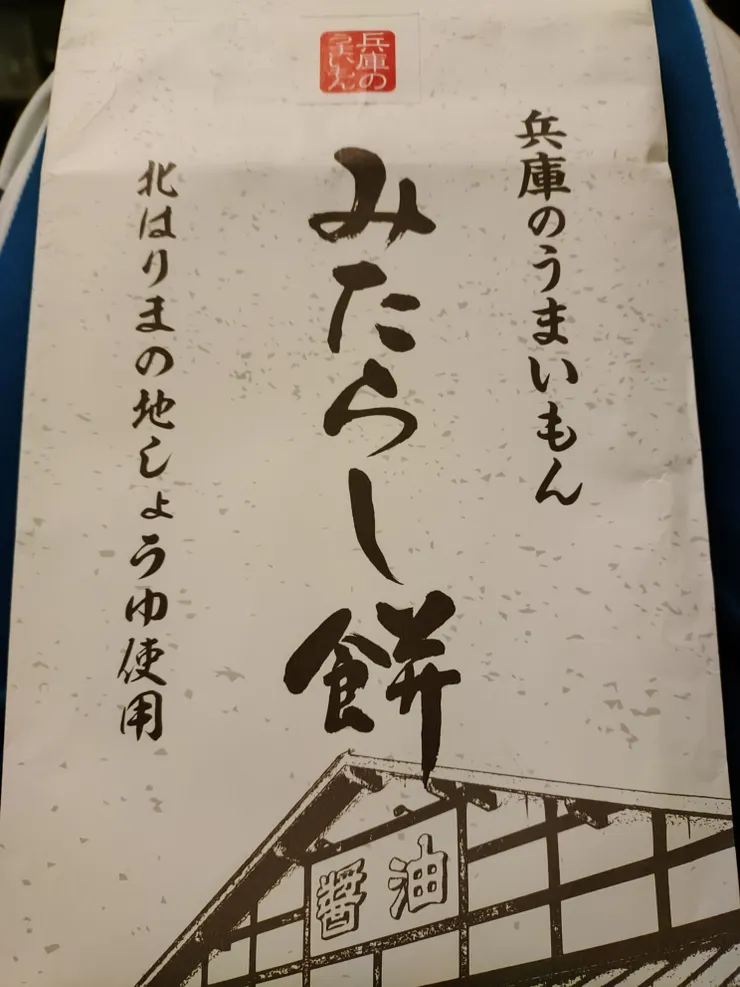 兵庫の
うまいもん
兵庫のうまいもん
みたらし餅
北はりまの地しょうゆ使用
醤油